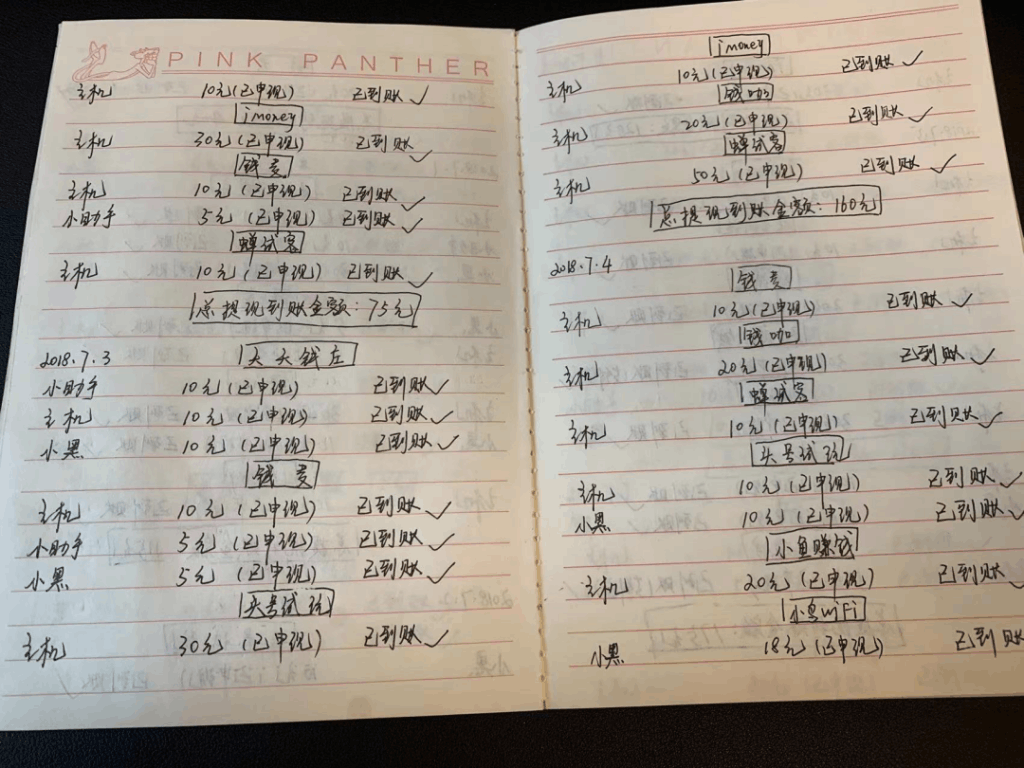 PINK PANTHER
主机 10元(已申现) 已到账 ✓
imoney
主机 30元(已申现) 已到账 ✓
钱麦
主机 10元(已申现) 已到账 ✓
小助手 5元(已申现) 已到账 ✓
蝉试客
主机 10元(已申现) 已到账 ✓
总提现到账金额：75元
2018.7.3 天天钱庄
小助手 10元(已申现) 已到账 ✓
主机 10元(已申现) 已到账 ✓
小黑 10元(已申现) 已到账 ✓
钱麦
主机 10元(已申现) 已到账 ✓
小助手 5元(已申现) 已到账 ✓
小黑 5元(已申现) 已到账 ✓
头号试玩
主机 30元(已申现) 已到账 ✓
imoney
主机 10元(已申现) 已到账 ✓
钱咖
主机 20元(已申现) 已到账 ✓
蝉试客
主机 50元(已申现) 已到账 ✓
总提现到账金额：160元
2018.7.4 钱麦
主机 10元(已申现) 已到账 ✓
钱咖
主机 20元(已申现) 已到账 ✓
蝉试客
主机 10元(已申现) 已到账 ✓
头号试玩
主机 10元(已申现) 已到账 ✓
小黑 10元(已申现) 已到账 ✓
小鱼赚钱
主机 20元(已申现) 已到账 ✓
小鸟wiFi
小黑 18元(已申现) 已到账